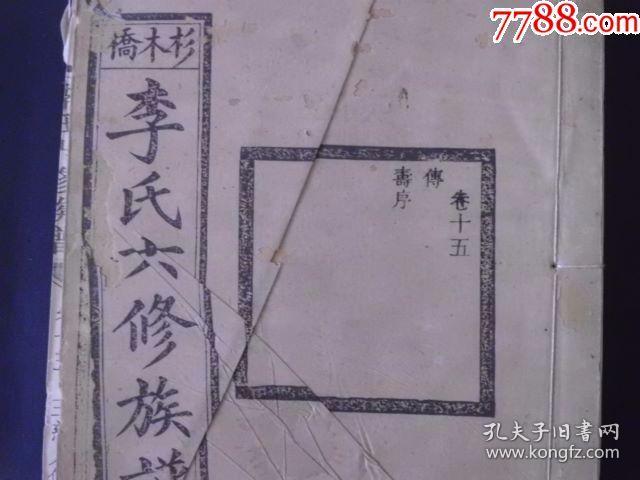 7788.com
杉木橋
李氏六修族譜
卷十五
傳
壽序
孔夫子旧書网
kongfz.com